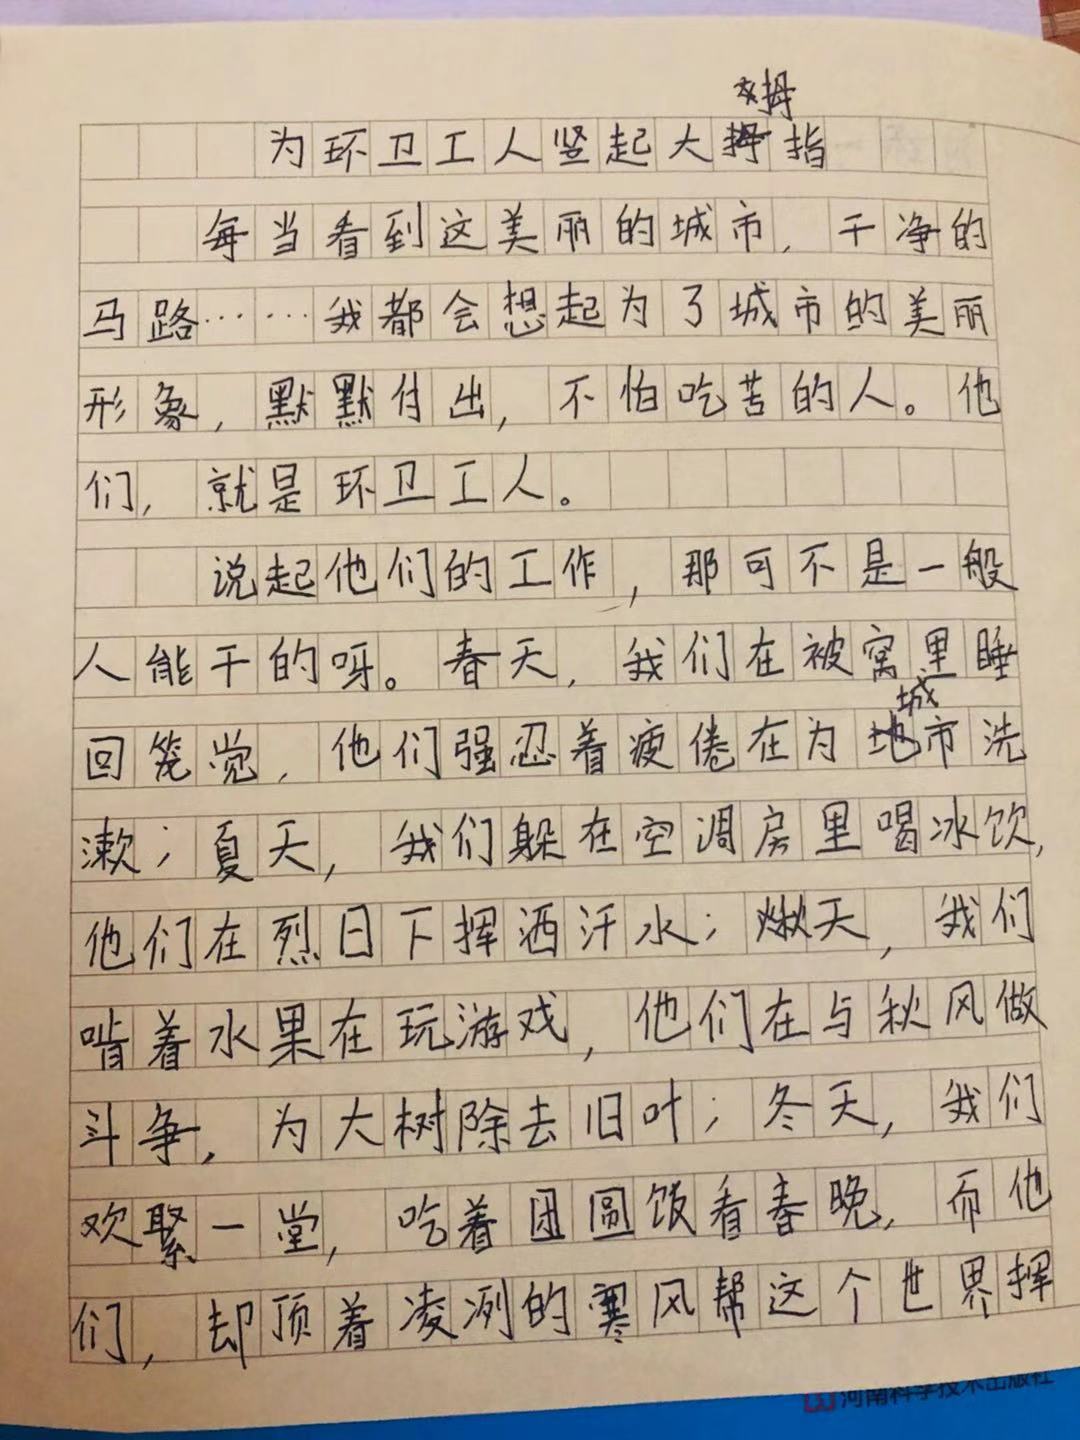 为环卫工人竖起大拇指
每当看到这美丽的城市，干净的
马路……我都会想起为了城市的美丽
形象，默默付出，不怕吃苦的人。他
们，就是环卫工人。
说起他们的工作，那可不是一般
人能干的呀。春天，我们在被窝里睡
回笼觉，他们强忍着疲倦在为城市洗
漱；夏天，我们躲在空调房里喝冰饮，
他们在烈日下挥洒汗水；秋天，我们
啃着水果在玩游戏，他们在与秋风做
斗争，为大树除去旧叶；冬天，我们
欢聚一堂，吃着团圆饭看春晚，而他
们，却顶着凌冽的寒风帮这个世界挥
河南科学技术出版社